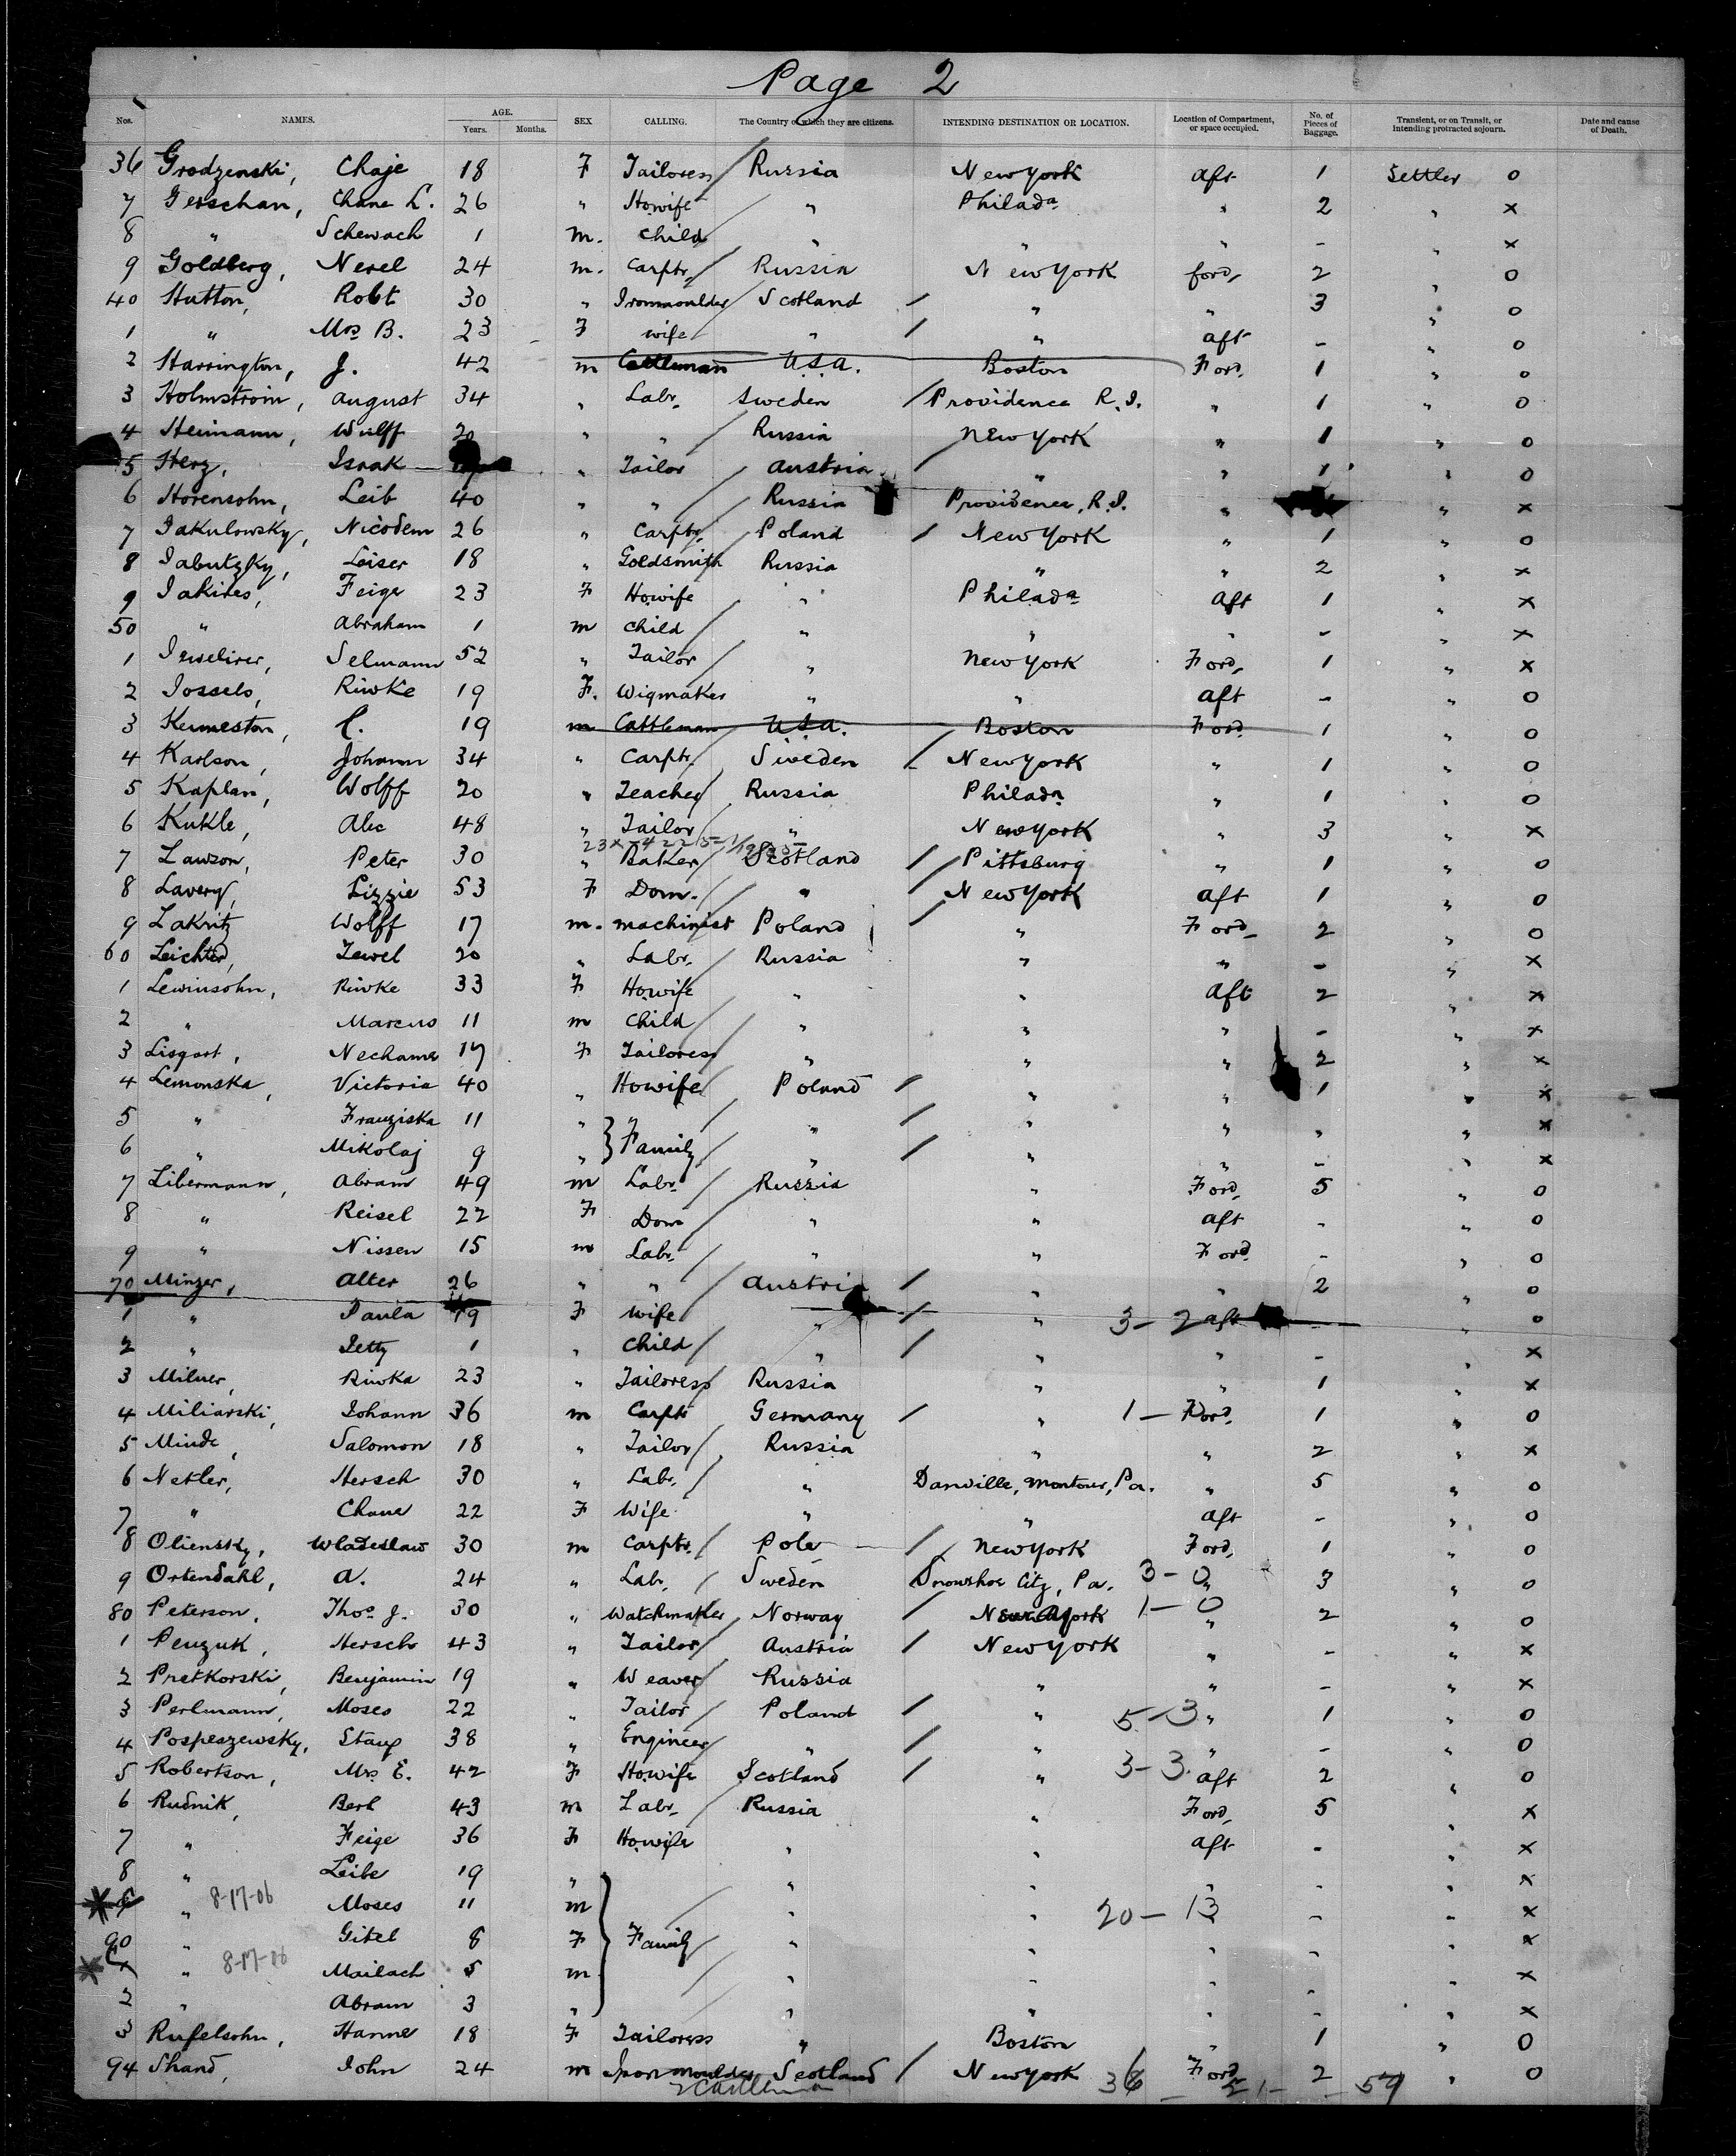 Page 2
Nos. NAMES. AGE. Years. Months. SEX CALLING. The Country of which they are citizens. INTENDING DESTINATION OR LOCATION. Location of Compartment, or space occupied. No. of Pieces of Baggage. Transient, or on Transit, or intending protracted sojourn. Date and cause of Death.
36 Grodzenski, Chaje 18 F Tailoress / Russia New York aft 1 Settler o
7 Gerschan, Chane L. 26 " Howife " Philada " 2 " x
8 " Schewach 1 m. child " " " - " x
9 Goldberg, Nevel 24 m. Carptr. / Russia New York ford, 2 " o
40 Hutton, Robt 30 " Ironmoulder / Scotland / " " 3 " o
1 " Mrs B. 23 F wife " / " aft - " o
2 Harrington, J. 42 m Cattleman U.S.A. Boston Ford, 1 " o
3 Holmstrom, August 34 " Labr. Sweden / Providence R.I. " 1 " o
4 Heimann, Wulff 20 " " / Russia New York " 1 " o
5 Herz, Isaak " Tailor / Austria / " " 1 " o
6 Horensohn, Leib 40 " " / Russia Providence, R.I. " " x
7 Jakulowsky, Nicodem 26 " Carptr. / Poland / New York " 1 " o
8 Jabutzky, Leiser 18 " Goldsmith / Russia " " 2 " x
9 Jakires, Feige 23 F Howife / " Philada aft 1 " x
50 " Abraham 1 m child / " " " - " x
1 Jewelirer, Selmann 52 " Tailor / " New York Ford, 1 " x
2 Jossels, Riwke 19 F. Wigmaker " " aft - " o
3 Kumeston, C. 19 m Cattleman U.S.A. Boston Ford 1 " o
4 Karlson, Johann 34 " Carptr. / Sweden / New York " 1 " o
5 Kaplan, Wolff 20 " Teacher / Russia Philada " 1 " o
6 Kukle, Alec 48 " Tailor / " New York " 3 " x
7 Lawson, Peter 30 " Baker / Scotland / Pittsburg " 1 " o
8 Lavery, Lizzie 53 F Dom. / " / New York aft 1 " o
9 Lakritz Wolff 17 m. machinist Poland / " Ford 2 " o
60 Leichter, Zewel 20 " Labr. / Russia " " - " x
1 Lewinsohn, Riwke 33 F Howife / " " aft 2 " x
2 " Marcus 11 m child / " " " - " x
3 Lisgart, Nechama 17 F Tailoress " " " 2 " x
4 Lemonska, Victoria 40 " Howife / Poland / " " 1 " x
5 " Franziska 11 " } Family / " / " " " " x
6 " Mikolaj 9 " / " / " " - " x
7 Libermann, Abram 49 m Labr. / Russia " Ford, 5 " o
8 " Reisel 22 F Dom / " " aft - " o
9 " Nissen 15 m Labr. / " " Ford - " o
70 Minzer, Alter 26 " " / Austria / " " 2 " o
1 " Paula 19 F wife / " / " 3 - 2 aft - " o
2 " Jetty 1 " child / " / " " - " x
3 Milner, Riwka 23 " Tailoress Russia " " 1 " x
4 Miliarski, Johann 36 m Carptr Germany / " 1 - Ford, 1 " o
5 Minde, Salomon 18 " Tailor / Russia " " 2 " x
6 Netler, Hersch 30 " Labr. / " Danville, Montour, Pa. " 5 " o
7 " Chane 22 F Wife " " aft - " o
8 Oliensky, Wladeslaw 30 m Carptr. / Pole / New York Ford, 1 " o
9 Ortendahl, A. 24 " Lab. / Sweden Snowshoe City, Pa. 3 - 0 " 3 " o
80 Peterson, Thos. J. 30 " Watchmaker Norway / New York 1 - 0 " 2 " o
1 Penzuk, Hersch 43 " Tailor / Austria / New York " - " x
2 Pretkorski, Benjamin 19 " Weaver / Russia " " - " x
3 Perlmann, Moses 22 " Tailor / Poland / " 5 - 3 " 1 " o
4 Pospeszewsky, Stanp 38 " Engineer / " / " " - " o
5 Robertson, Mrs. E. 42 F Howife Scotland / " 3 - 3 aft 2 " o
6 Rudnik, Berl 43 m Labr. / Russia " Ford, 5 " x
7 " Feige 36 F Howife " " aft - " x
8 " Leibe 19 " " " " - " x
9 " 8-17-06 Moses 11 m / " " 20 - 13 - " x
90 " Gitel 8 F } Family / " " " - " x
" 8-17-06 Mailach 5 m / " " " - " x
2 " Abram 3 " / " " " - " x
3 Rufelsohn, Hanne 18 F Tailoress " Boston " 1 " o
94 Shand, John 24 m Iron moulder Scotland / New York Ford 2 " o
36 - 21 - - 57